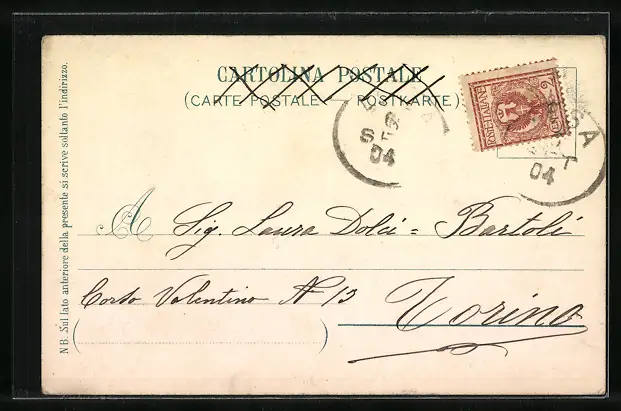 CARTOLINA POSTALE
(CARTE POSTALE POSTKARTE)
SET
04
SA
T
04
A Sig. Laura Dolci = Bartoli
Corso Valentino N 13 Torino
NB. Sul lato anteriore della presente si scrive soltanto l'indirizzo.